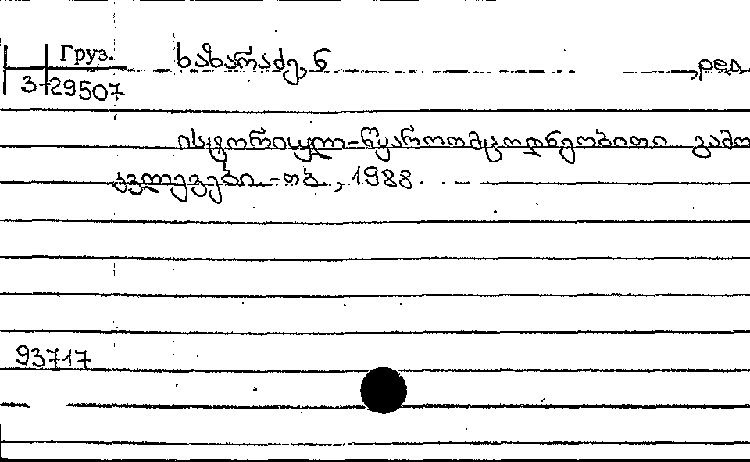 Груз. ხაზარაძე, ნ ,ред
3-29507
ისტორიულ-წყაროთმცოდნეობითი გამო
კვლევები.-თბ., 1988.
93717